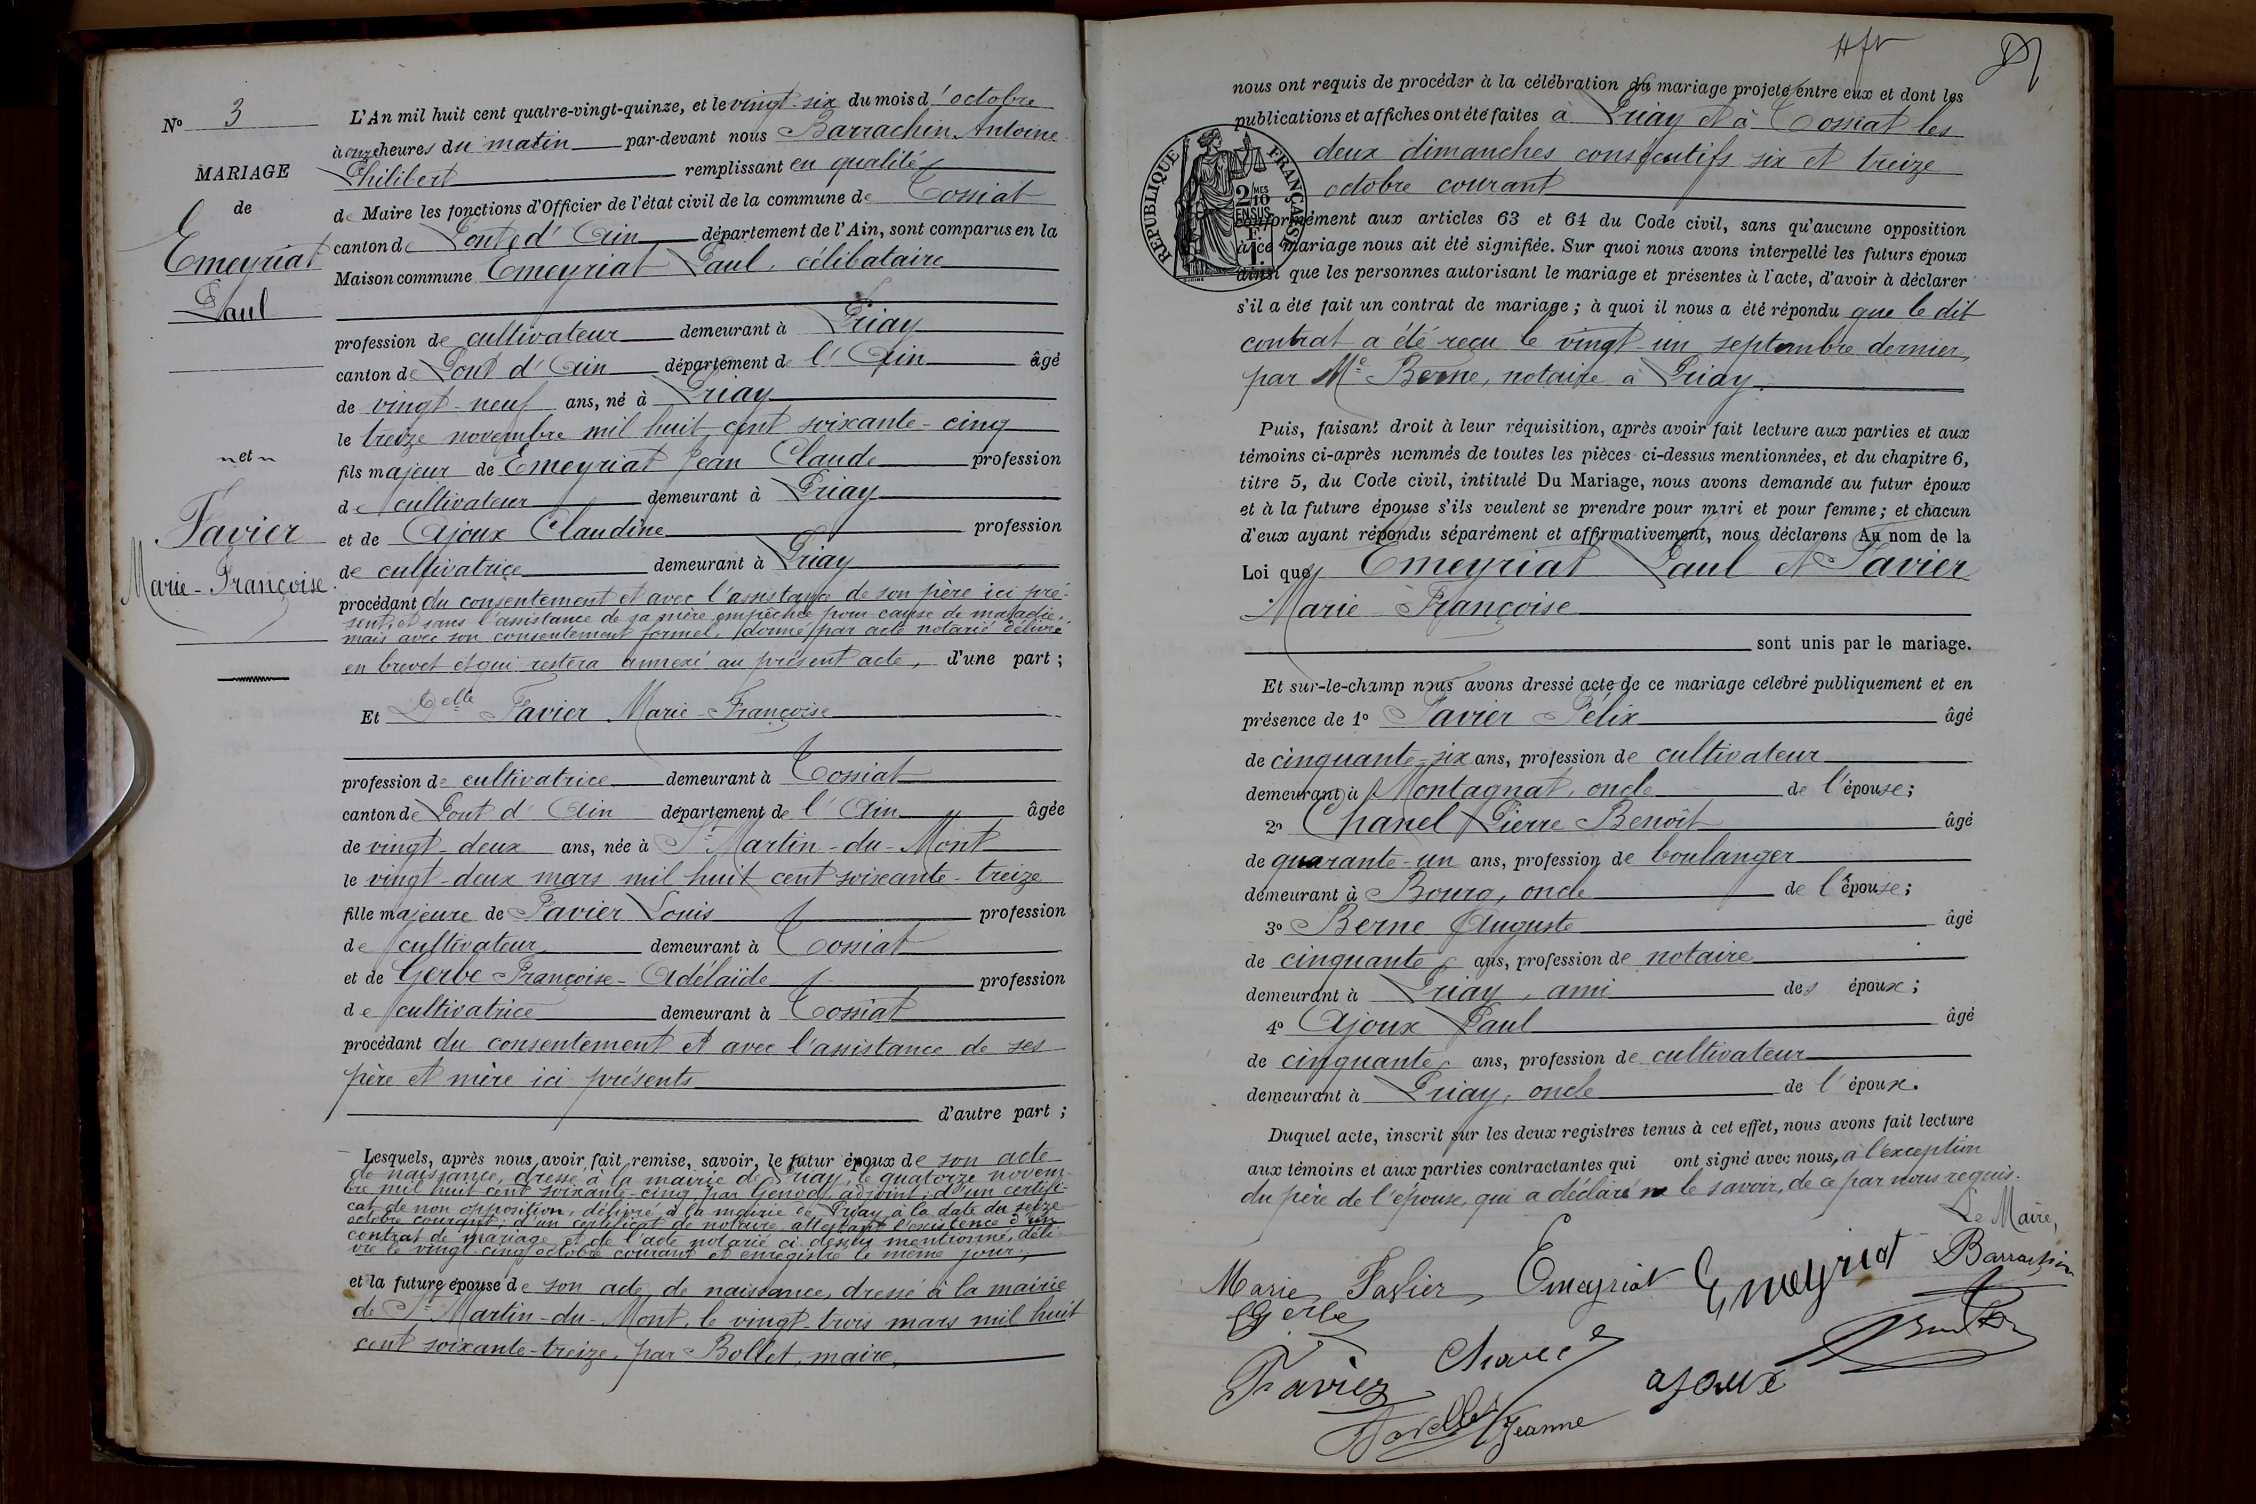 N° 3
MARIAGE
de
Emeyriat
Paul
et
Favier
Marie-Françoise
L'An mil huit cent quatre-vingt-quinze, et le vingt-six du mois d'octobre
à onze heures du matin par-devant nous Barrachin Antoine
Philibert remplissant en qualité
de Maire les fonctions d'Officier de l'état civil de la commune de Tossiat
canton de Pont d'Ain département de l'Ain, sont comparus en la
Maison commune Emeyriat Paul, célibataire
profession de cultivateur demeurant à Priay
canton de Pont d'Ain département de l'Ain âgé
de vingt-neuf ans, né à Priay
le treize novembre mil huit cent soixante-cinq
fils majeur de Emeyriat Jean Claude profession
de cultivateur demeurant à Priay
et de Ajoux Claudine profession
de cultivatrice demeurant à Priay
procédant du consentement et avec l'assistance de son père ici pré-
sent, et sans l'assistance de sa mère empêchée pour cause de maladie,
mais avec son consentement formel, donné par acte notarié délivré
en brevet et qui restera annexé au présent acte, d'une part;
Et Delle Favier Marie-Françoise
profession de cultivatrice demeurant à Tossiat
canton de Pont d'Ain département de l'Ain âgée
de vingt-deux ans, née à St Martin-du-Mont
le vingt-deux mars mil huit cent soixante-treize
fille majeure de Favier Louis profession
de cultivateur demeurant à Tossiat
et de Gerbe Françoise-Adélaïde profession
de cultivatrice demeurant à Tossiat
procédant du consentement et avec l'assistance de ses
père et mère ici présents
d'autre part;
Lesquels, après nous avoir fait remise, savoir, le futur époux de son acte
de naissance, dressé à la mairie de Priay, le quatorze novem-
bre mil huit cent soixante-cinq par Genod, adjoint; d'un certifi-
cat de non opposition, délivré à la mairie de Priay à la date du seize
octobre courant; d'un certificat de notaire attestant l'existence d'un
contrat de mariage et de l'acte notarié ci-dessus mentionné, déli-
vré le vingt-cinq octobre courant et enregistré le même jour;
et la future épouse de son acte de naissance, dressé à la mairie
de St Martin-du-Mont, le vingt-trois mars mil huit
cent soixante-treize, par Bollet, maire,
nous ont requis de procéder à la célébration du mariage projeté entre eux et dont les
publications et affiches ont été faites à Priay et à Tossiat les
deux dimanches consécutifs six et treize
octobre courant
RÉPUBLIQUE FRANÇAISE
2/10 EN SUS
conformément aux articles 63 et 64 du Code civil, sans qu'aucune opposition
à ce mariage nous ait été signifiée. Sur quoi nous avons interpellé les futurs époux
ainsi que les personnes autorisant le mariage et présentes à l'acte, d'avoir à déclarer
s'il a été fait un contrat de mariage; à quoi il nous a été répondu que le dit
contrat a été reçu le vingt-un septembre dernier,
par Me Berne, notaire à Priay.
Puis, faisant droit à leur réquisition, après avoir fait lecture aux parties et aux
témoins ci-après nommés de toutes les pièces ci-dessus mentionnées, et du chapitre 6,
titre 5, du Code civil, intitulé Du Mariage, nous avons demandé au futur époux
et à la future épouse s'ils veulent se prendre pour mari et pour femme; et chacun
d'eux ayant répondu séparément et affirmativement, nous déclarons Au nom de la
Loi que Emeyriat Paul et Favier
Marie Françoise
sont unis par le mariage.
Et sur-le-champ nous avons dressé acte de ce mariage célébré publiquement et en
présence de 1° Favier Félix âgé
de cinquante-six ans, profession de cultivateur
demeurant à Montagnat, oncle de l'épouse;
2° Chanel Pierre Benoît âgé
de quarante-un ans, profession de boulanger
demeurant à Bourg, oncle de l'épouse;
3° Berne Auguste âgé
de cinquante ans, profession de notaire
demeurant à Priay, ami des époux;
4° Ajoux Paul âgé
de cinquante ans, profession de cultivateur
demeurant à Priay, oncle de l'époux.
Duquel acte, inscrit sur les deux registres tenus à cet effet, nous avons fait lecture
aux témoins et aux parties contractantes qui ont signé avec nous, à l'exception
du père de l'épouse, qui a déclaré ne le savoir, de ce par nous requis.
Le Maire,
Marie Favier Emeyriat Emeyriat Barrachin
Gerbe
Favier Chanel ajoux
Jeanne